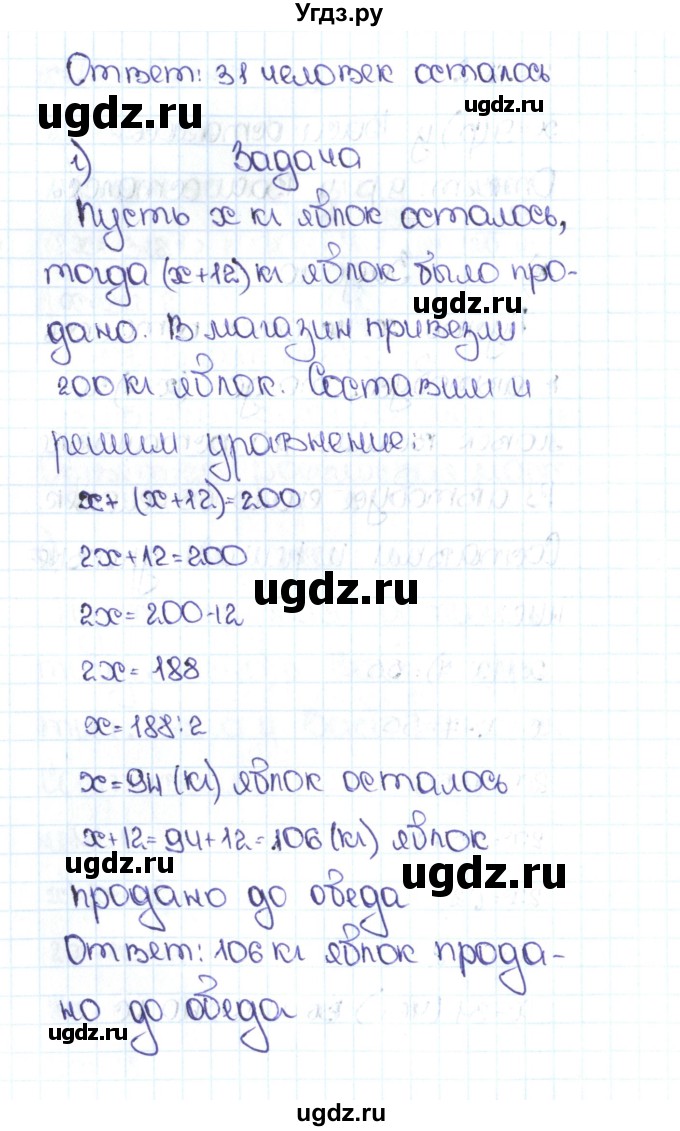 Угдз.ру
Ответ: 31 человек осталось
ugdz.ru
ugdz.ru
1) Задача
Пусть x кг яблок осталось,
тогда (x+12) кг яблок было про-
ugdz.ru
дано. В магазин привезли
200 кг яблок. Составим и
решим уравнение:
x+ (x+12)=200
2x+12=200
ugdz.ru
2x=200-12
2x=188
x=188:2
x=94 (кг) яблок осталось
x+12=94+12=106 (кг) яблок
ugdz.ru
ugdz.ru
продано до обеда
Ответ: 106 кг яблок прода-
но до обеда
ugdz.ru
ugdz.ru